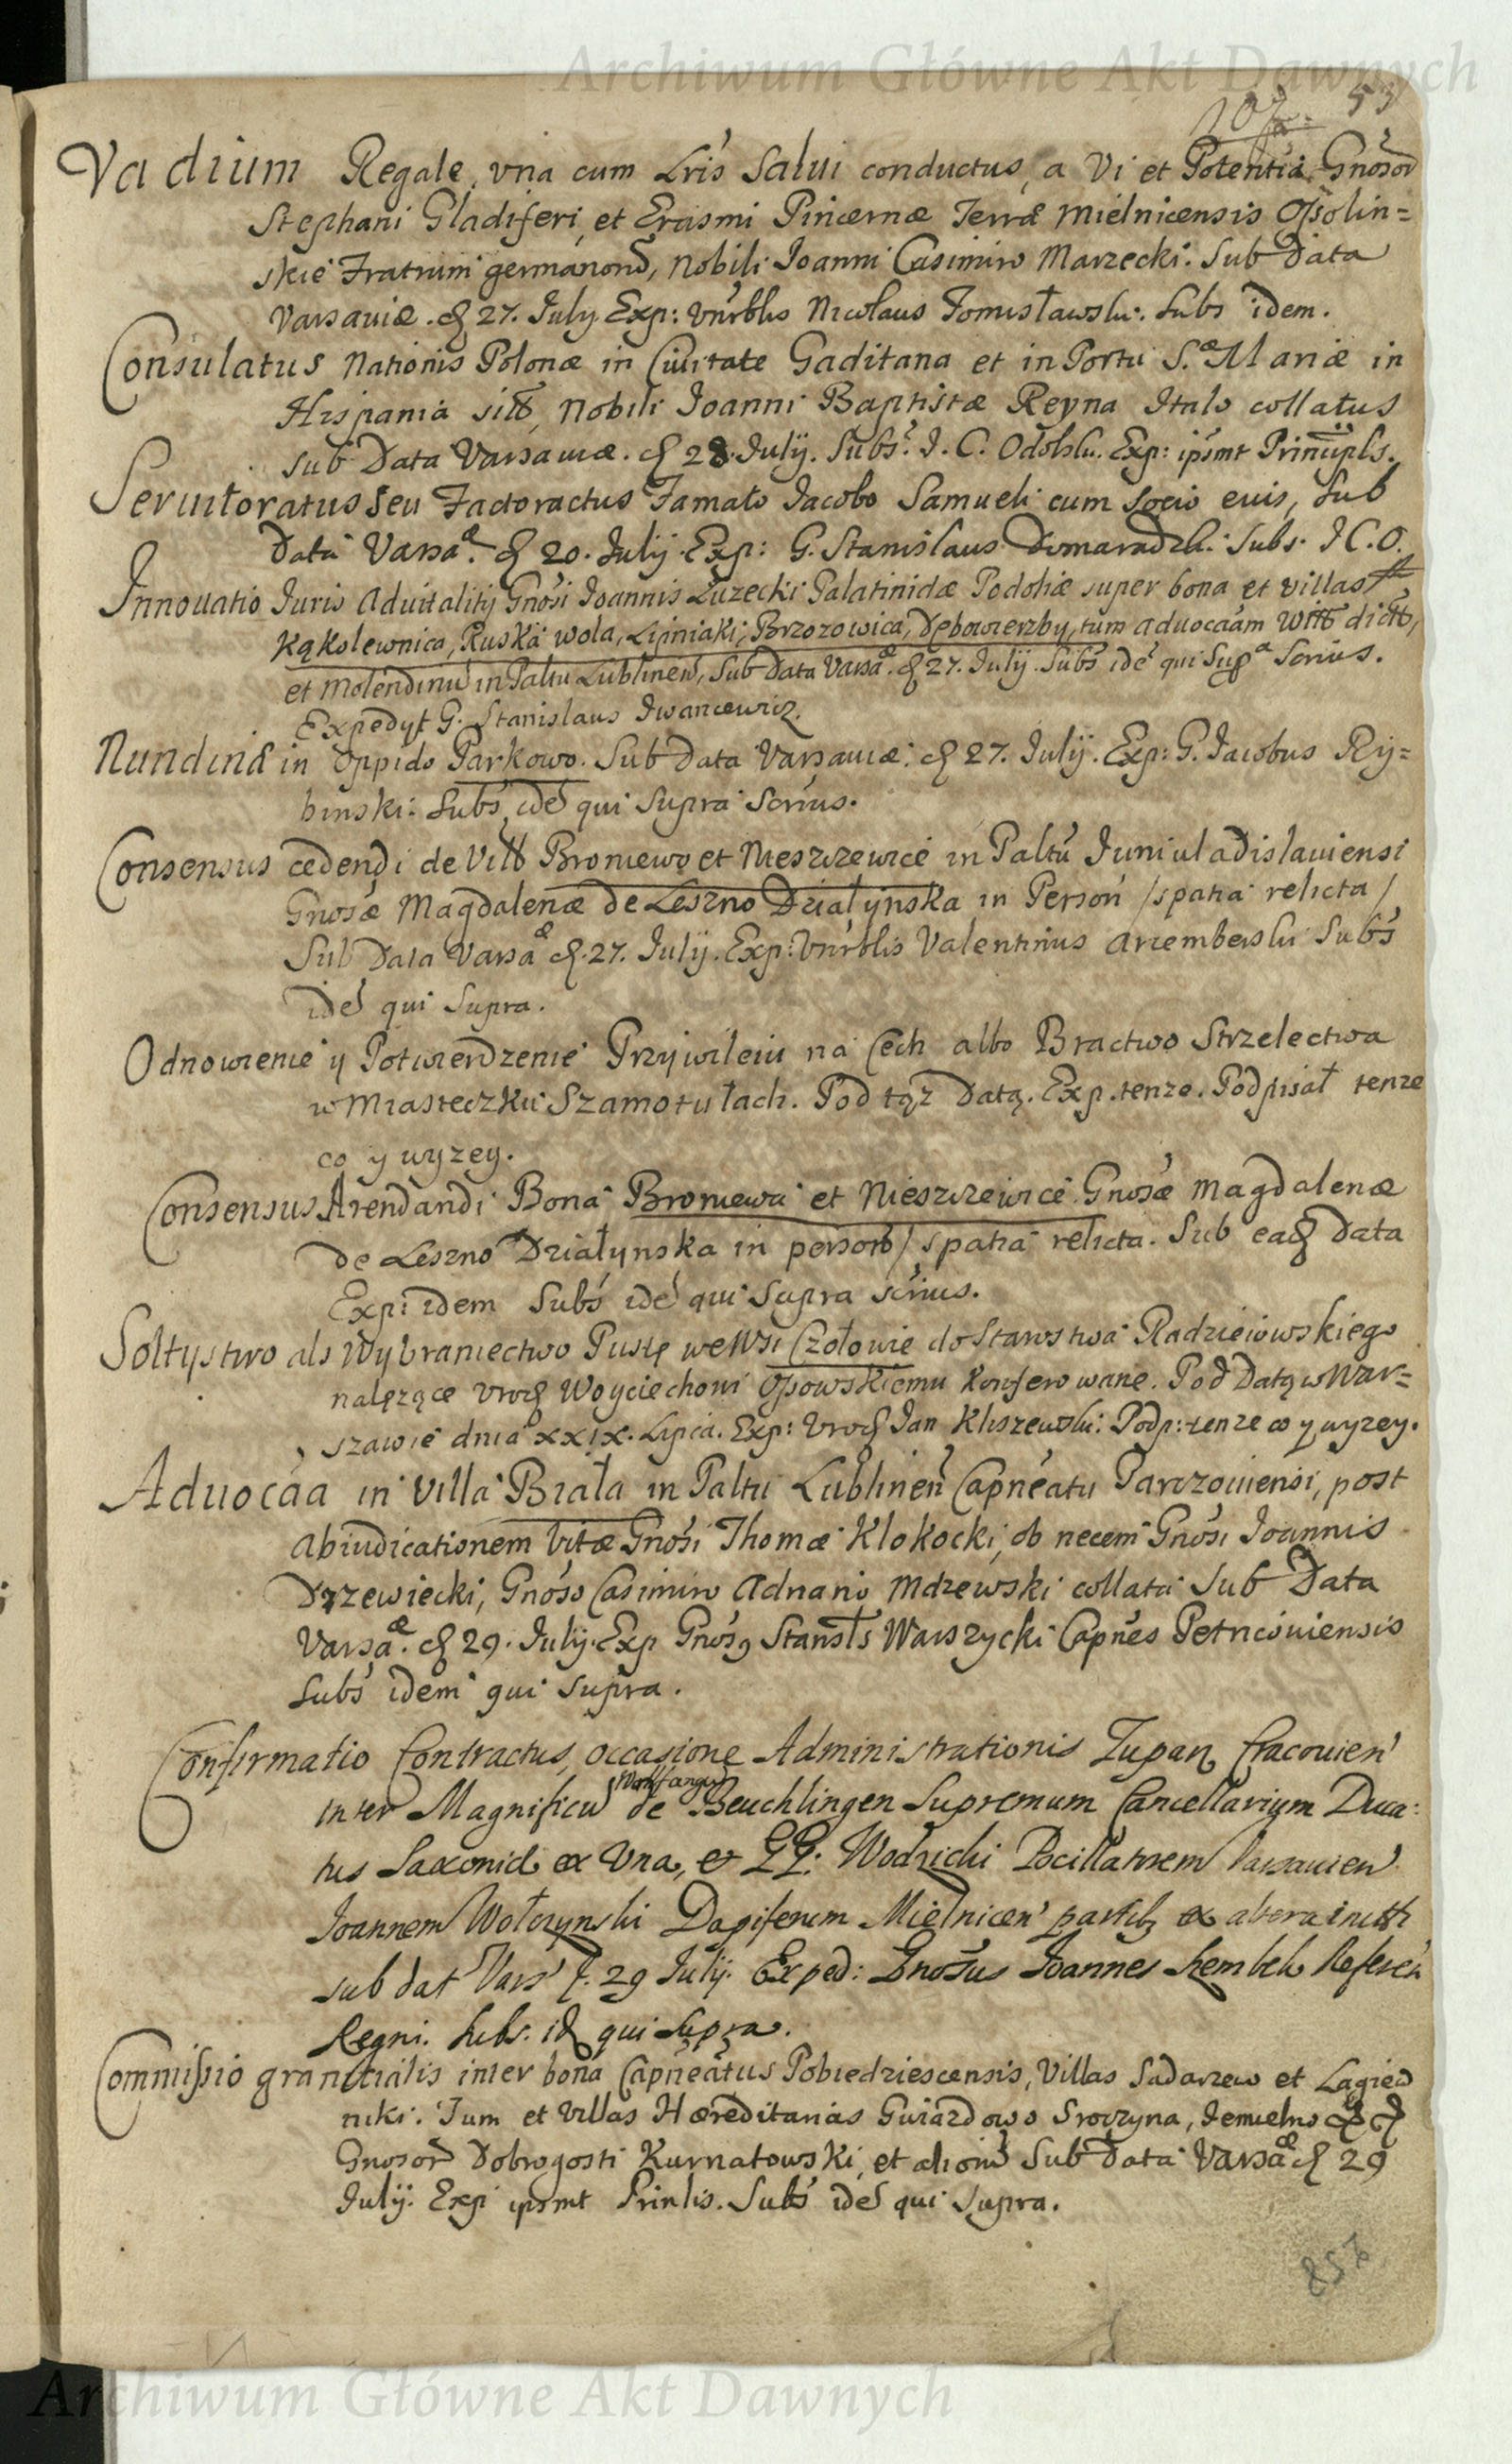 Archiwum Główne Akt Dawnych
107 53
Vadium Regale, vna cum Lris Salui conductus, a Vi et Potentia Gnosor
Stephani Gladiferi, et Erasmi Pincernæ Terræ Mielnicensis Ossolin=
skie Fratrum germanorū, Nobili Joanni Casimiro Marzecki. Sub Data
Varsauiæ. 27. July. Exp: Vnrblis Nicolaus Tomisławski. Subs idem.
Consulatus Nationis Polonæ in Ciuitate Gaditana et in Portu S.æ Mariæ in
Hispania sitt, Nobili Joanni Baptistæ Reyna Italo collatus
sub Data Varsauiæ. 28. Julij. Subs. J. C. Odolski. Exp: ipsmt Principls.
Seruitoratus seu Factoractus Famato Jacobo Samueli cum socio euis, sub
Data Varsaæ. 20. Julij. Exp: G. Stanislaus Domaradzki. Subs. J C. O.
Innouatio Juris Aduitalitij Gnosi Joannis Łuzecki Palatinidæ Podoliæ super bona et villas
Kąkolewnica, Ruska wola, Lipiniaki, Brzozowica, Dębowierzby, tum aduocaam Witt dictt,
et Molendinū in Paltu Lublineń, Sub Data Varsaæ. 27. Julij. Subs ide qui Supª Scrius.
Expedyt G. Stanislaus Iwancewicz.
Nundinæ in Oppido Parkowo. Sub Data Varsauiæ. 27. Julij. Exp: G. Jacobus Ry=
binski: Subs, ide qui Supra Scrius.
Consensus cedendi de Vill Broniewo et Nieszczewice in Paltu Juniuladislauiensi
Gnosæ Magdalenæ de Leszno Działynska in Person / spatia relicta /
Sub Data Varsaæ 27. Julij. Exp: Vnrblis Valentinus Arcemberski Subs
ide qui Supra.
Odnowienie y Potwierdzenie Przywileiu na Cech albo Bractwo Strzelectwa
w Miasteczku Szamotułach. Pod tąz Datą. Exp. tenze. Podpisał tenze
co y wyzey.
Consensus Arendandi Bona Broniewa et Nieszczewice Gnosæ Magdalenæ
de Leszno Działynska in person / spatia relicta. Sub ead Data
Exp: idem Subs ide qui Supra scrius.
Sołtystwo als Wybraniectwo Puste we Wsi Czołowie do Starostwa Radzieiowskiego
nalęzące Vrod Woyciechowi Ossowskiemu Konferowane. Pod Datą w War=
szawie dnia XXIX. Lipca. Exp: Vrod Jan Kliszewski: Podp: tenze co y wyzey.
Aduocaa in Villa Biała in Paltu Lublineń Capneatu Parczouiensi, post
Abiudicationem Vitæ Gnosi Thomæ Klokocki, ob necem Gnosi Joannis
Drzewiecki, Gnoso Casimiro Adriano Mdzewski collata Sub Data
Varsaæ. 29. Julij. Exp Gnosg Stansls Warszycki Capnes Petricouiensis
Subs idem qui supra.
Confirmatio Contractus, occasione Administrationis Zupar Cracouien
Wolffangū
inter Magnificū de Beuchlingen Supremum Cancellarium Duca:
tus Saxoniæ ex Vna, et GG: Wodzicki Pocillatorem Varsauien
Joannem Wołczynski Dapiferum Mielnicen partib ex altera initt
sub dat Vars. 29 Julij. Exped: Gnosus Joannes Szembek Referen
Regni. Subs. id qui Supra.
Commissio granicialis inter bona Capneatus Pobiedziescensis, Villas Sadarzew et Lagiew
niki. Tum et Villas Hæreditarias Gwiazdowo Sroczyna, Jemielno
Gnosor Dobrogosti Kurnatowski, et aliorū Sub Data Varsaæ 29
Julij. Exp ipsmt Prinlis. Subs ide qui supra.
258
Archiwum Główne Akt Dawnych